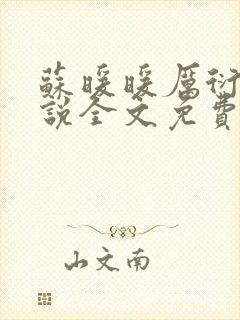 蘇暖暖厲衍
說全文免費
山文南